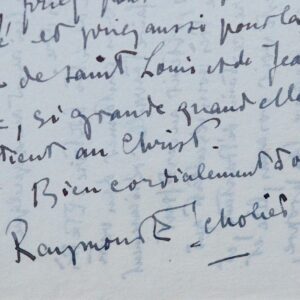 et priez aussi pour la
de saint Louis et de Jea
, si grande quand elle
tient au Christ.
Bien cordialement à vo
Raymond Escholier